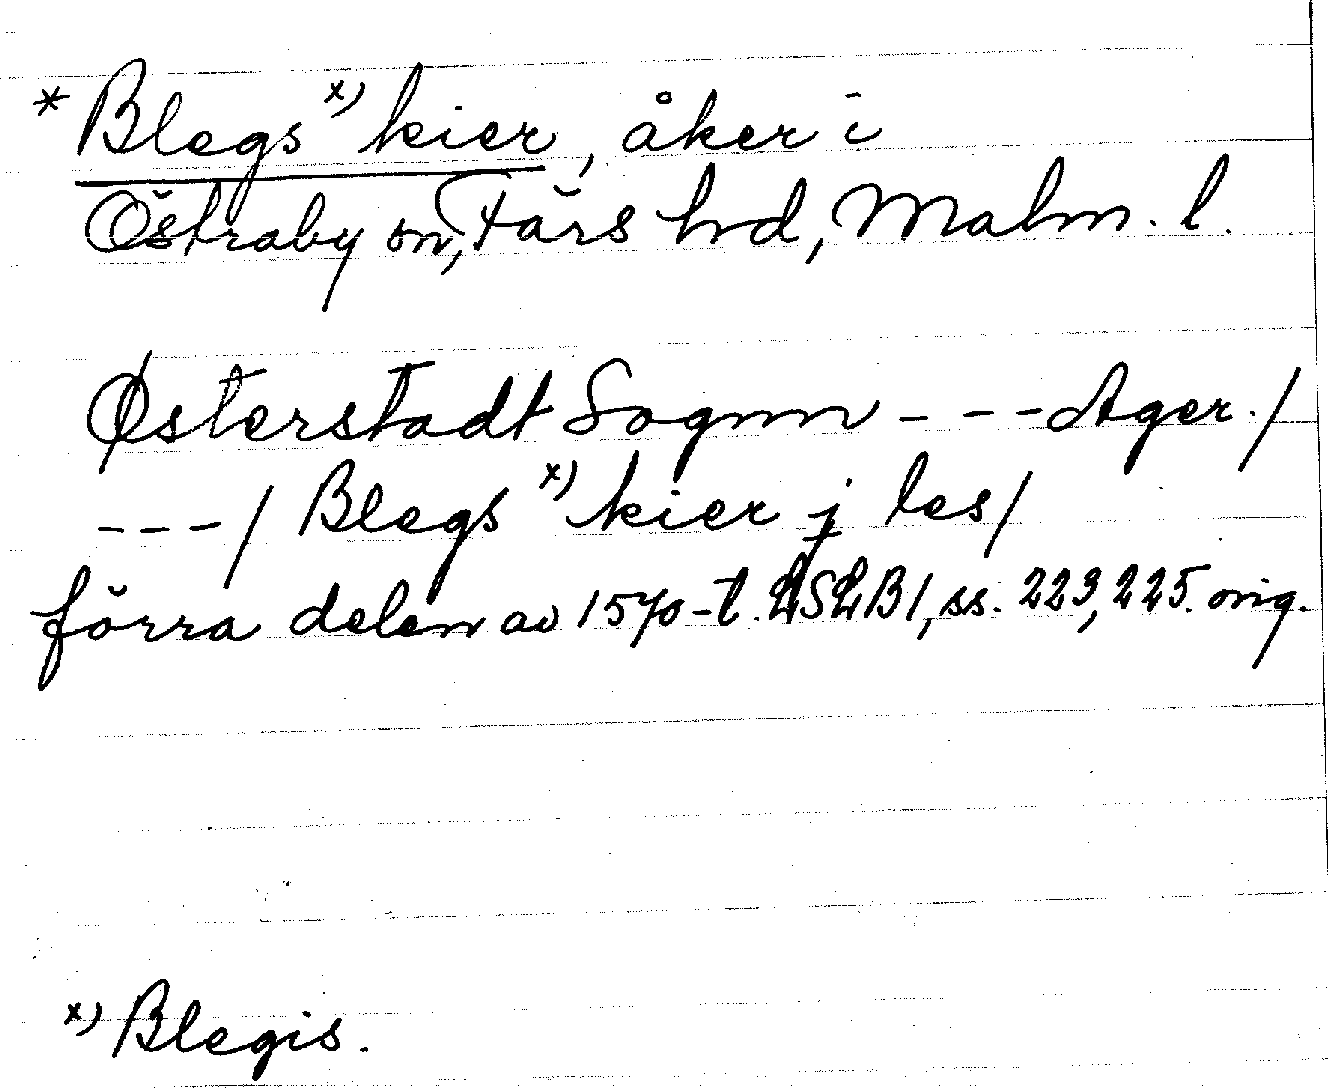 * Blegs x) kier, åker i
Östraby sn, Färs hd, Malm. l.
Østerstadt Sognn - - - Ager./
- - - / Blegs x) kier j les/
förra delen av 1570-t. LSLB1, ss. 223, 225. orig.
x) Blegis.